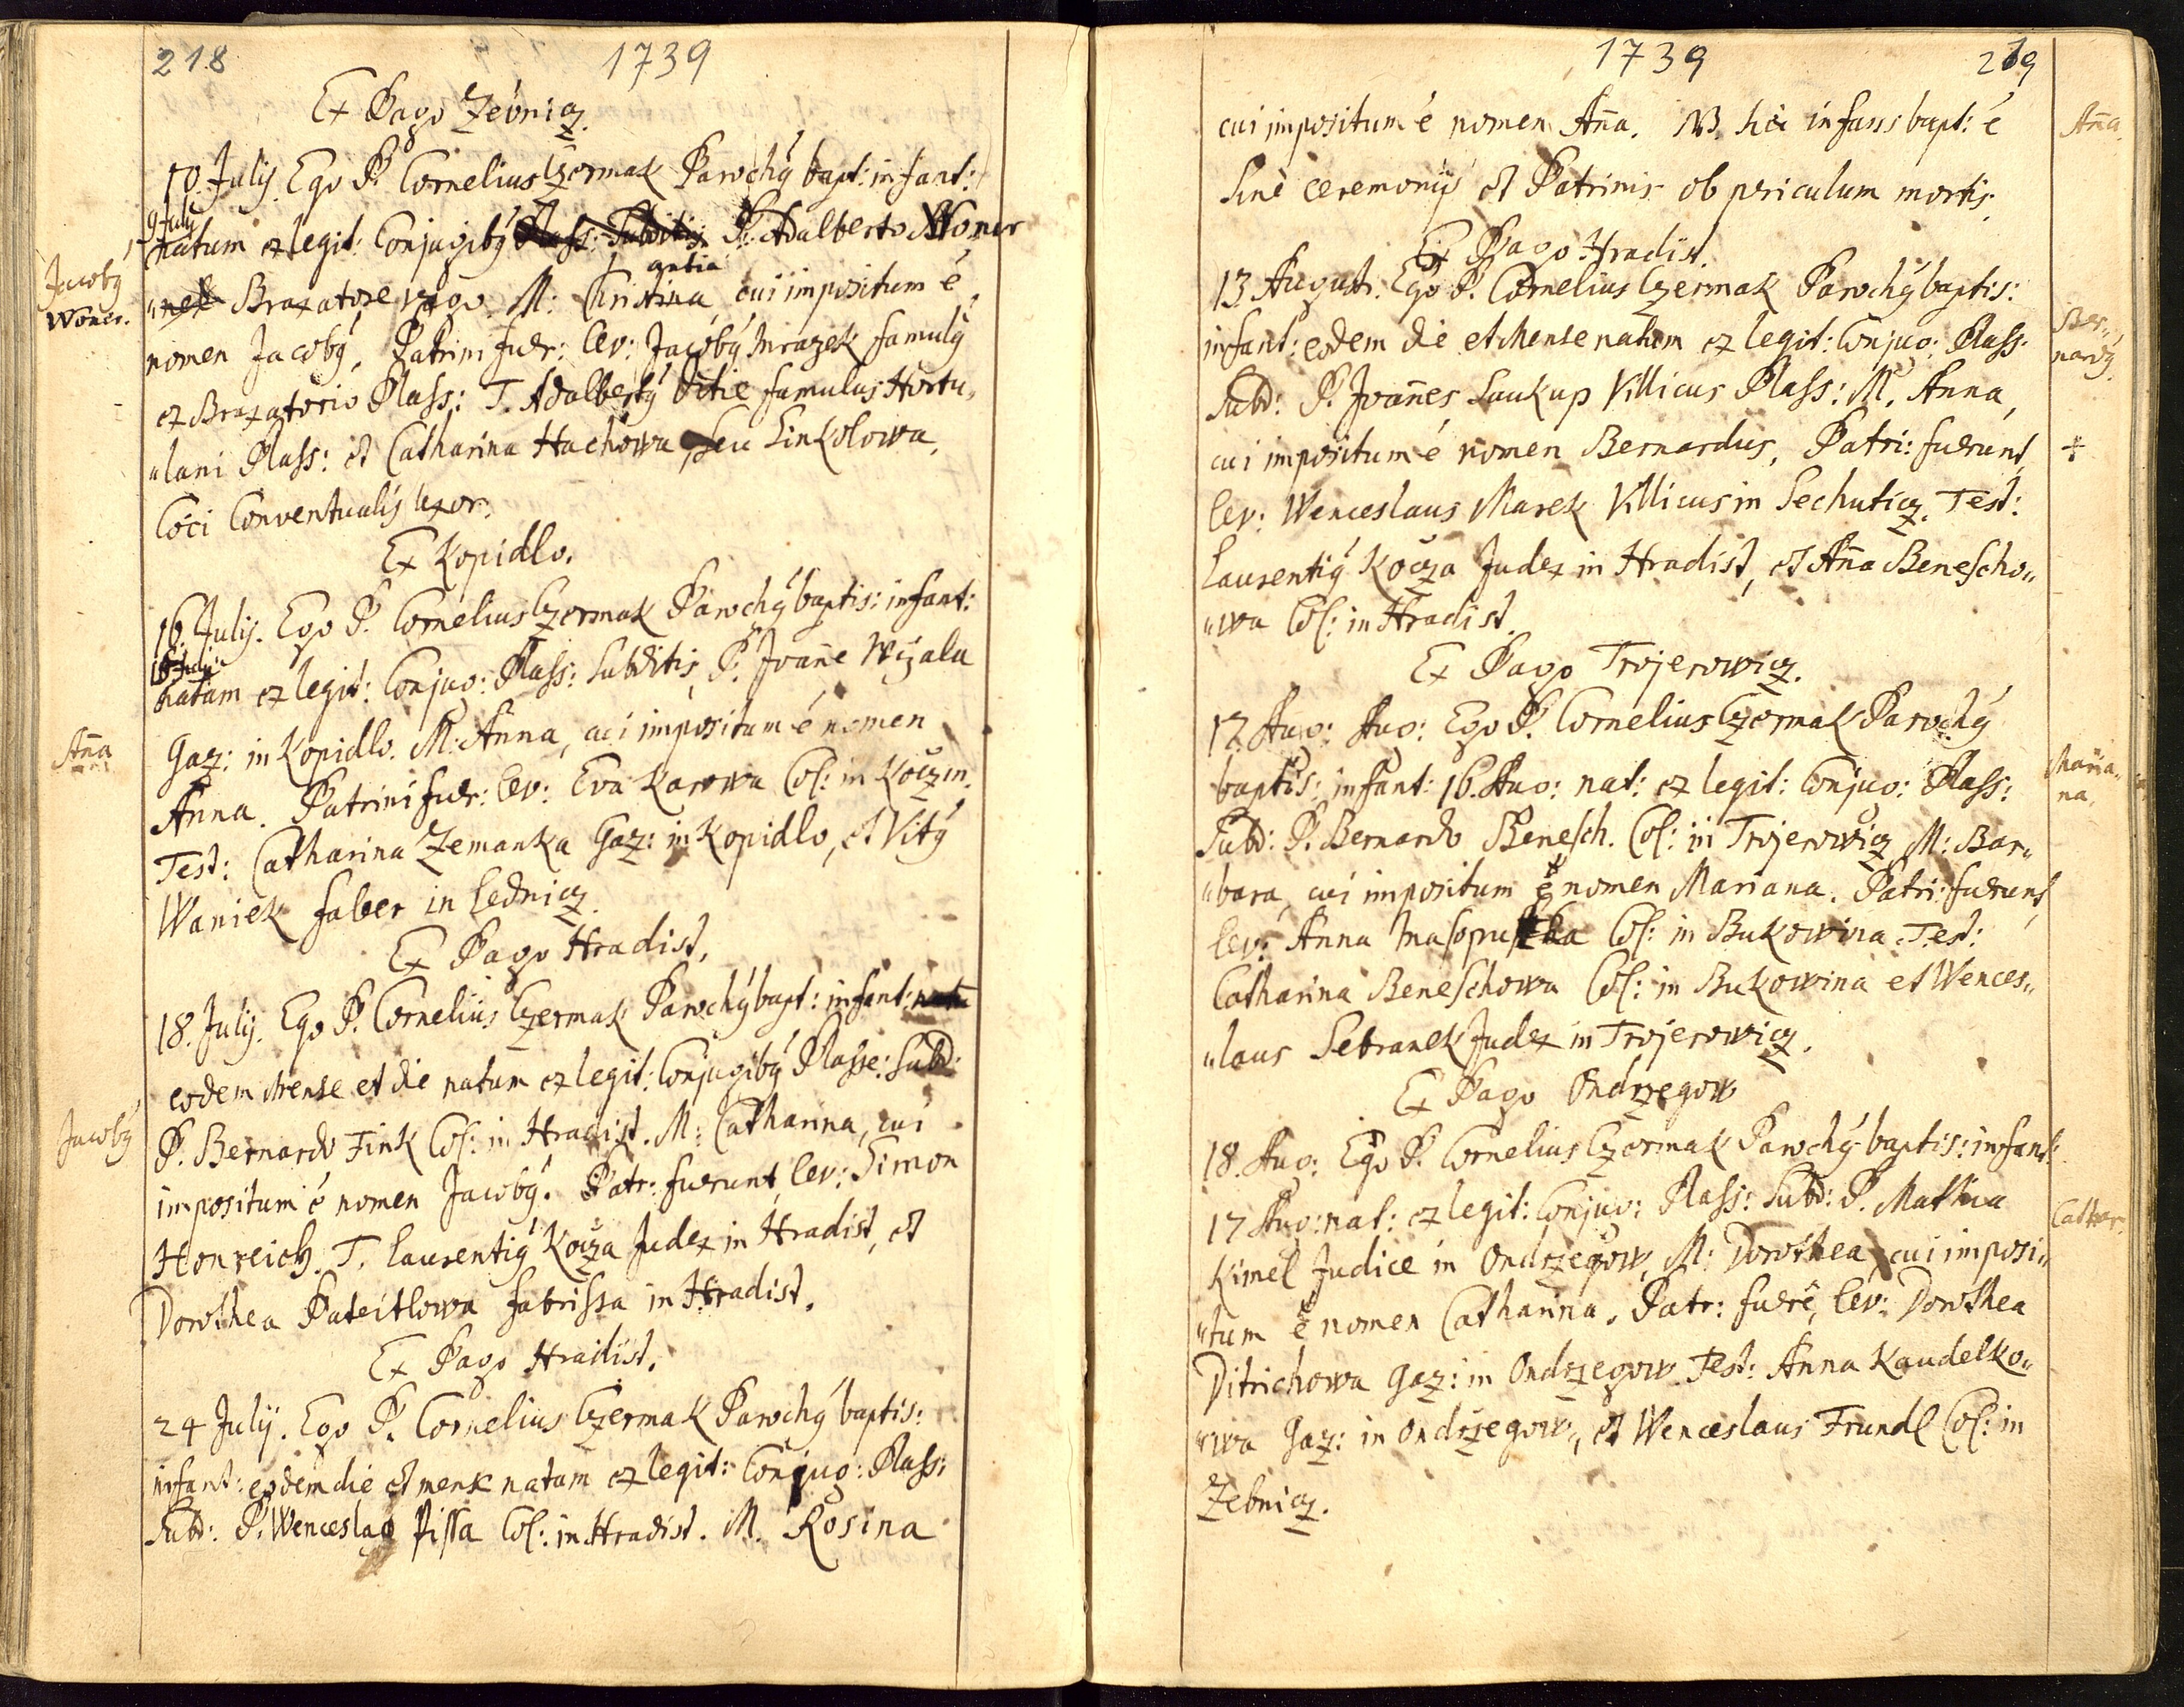 218
1739
Ex Pago Zebnicz.
10. Julÿ. Ego P. Cornelius Czermak Parochý bapt: infant:
9 July
natum ex legit: Conjugibý Plass: Subditis P. Adalberto Woner
Jacobý
Woner.
Braxatore vago. M: Christina
cui impositum é
nomen Jacobý, Patrini fuer: lev: Jacobý Mrazek famulý
ex Braxatorio Plass: T. Adalbertý Ditie famulus Hortu„
„lani Plass: et Catharina Hachowa seu Sinkolowa,
Coci Conventualis uxor.
Ex Kopidlo.
16. Julÿ. Ego P. Cornelius Czermak Parochý baptis: infant:
natam ex legit: Conjug: Plass: Subditis, P: Joañe Wizala
Gaz: in Kopidlo. M: Anna, cui impositum é nomen
Aña
Anna. Patrini fuer: lev: Eva Karowa Col: in Koczin.
Test: Catharina Zemanka Gaz: in Kopidlo, et Vitý
Waniek faber in Lednicz.
Ex Pago Hradist.
18. July. Ego P. Cornelius Czermak Parochý bapt: infant:
eodem Mense et die natum ex legit: Conjugibý Plasse: Subd:
Jacobý
P. Bernardo Fink Col: in Hradist. M: Catharina, cui
impositum é nomen Jacobý. Patr: fuerunt, lev: Simon
Honreich. T. Laurentiý Kocza Judex in Hradist, et
Dorothea Pateitlowa fabrissa in Hradist.
Ex Pago Hradist.
24 Julÿ. Ego P. Cornelius Czermak Parochý baptis:
infant: eodem die et mense natam ex legit: Conjug: Plass:
Subd: P. Wenceslao Pissa Col: in Hradist. M. Rosina
1739
219
cui impositum é nomen Aña. NB. hic infans bapt: é
Aña
sine ceremoniis et Patrinis ob periculum mortis.
Ex Pago Hradist.
13 August. Ego P. Cornelius Czermak Parochý baptis:
infant: eodem die et Mense natum ex legit: Conjug: Plass:
Ber„
nardý
Subd: P. Joañes Saukup Villicus Plass: M. Anna,
cui impositum é nomen Bernardus, Patri: fuerunt,
lev: Wenceslaus Marek Villicus in Sechuticz. Test:
Laurentiý Kocza Judex in Hradist, et Aña Benescho„
„wa Col: in Hradist.
Ex Pago Trojerowicz.
17. Aug: Aug: Ego P. Cornelius Czermak Parochý
baptis: infant: 16. Aug: nat: ex legit: Conjug: Plass:
Maria„
na.
Subd: P. Bernardo Benesch. Col: in Trojerowicz M: Bar„
„bara, cui impositum é nomen Mariana. Patri: fuerunt,
lev: Anna Masopustka Col: in Bukowina. Test:
Catharina Beneschowa Col: in Bukowina et Wences„
„laus Sebranek Judex in Trojerowicz.
Ex Pago Ondrzegow
18. Aug: Ego P. Cornelius Czermak Parochý baptis: infant:
17 Aug: nat: ex legit: Conjug: Plass: Subd: P. Mathia
Cathar.
Kimel Judice in Ondrzegow, M: Dorothea, cui imposi„
„tum é nomen Catharina. Patr: fuerē, lev: Dorothea
Ditrichowa Gaz: in Ondrzegow. Test: Anna Kaudelko„
„wa Gaz: in Ondrzegow, et Wenceslaus Trundl Col: in
Zebnicz.